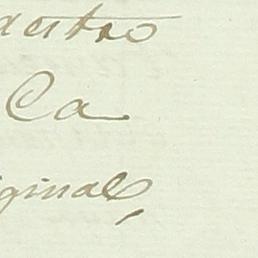 destro
Ca
iginal,